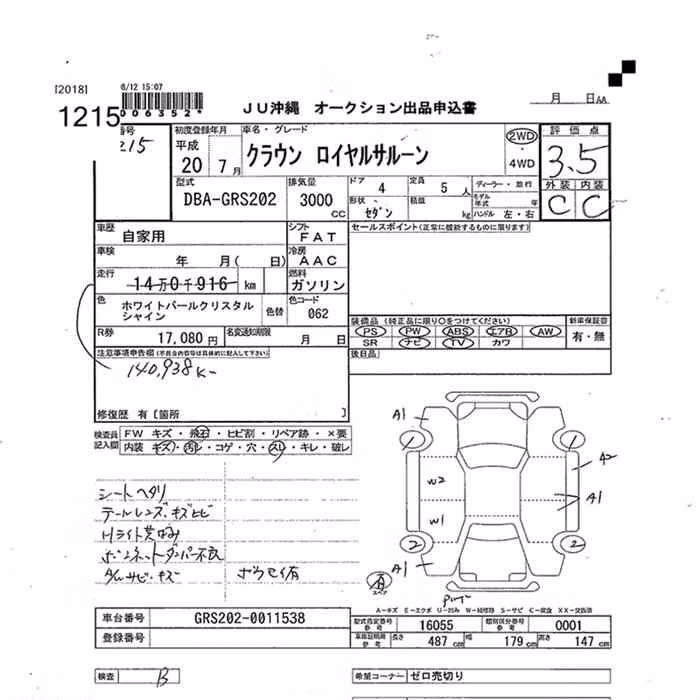 [2018] 6/12 15:07
1215
006352*
JU沖縄 オークション出品申込書
月 日AA
番号
215
初度登録年月
平成
20 7月
車名・グレード
クラウン ロイヤルサルーン
2WD
・
4WD
評価点
3.5
外装 内装
C C
型式
DBA-GRS202
排気量
3000
CC
ドア
4
定員
5 人
ディーラー・並行
形状
セダン
積載
kg
モデル年式 年
ハンドル 左・右
車歴
自家用
シフト
FAT
セールスポイント(正常に機能するものに限ります)
車検
年 月( 日)
冷房
AAC
走行
14万0千916 km
燃料
ガソリン
色
ホワイトパールクリスタル
シャイン
色替
色コード
062
装備品 (純正品に限り○をつけてください)
新車保証書
PS PW ABS エアB AW
SR ナビ TV カワ
有・無
R券
17,080 円
名変通知期限
月 日
後日品
注意事項申告欄(不具合内容等は具体的に記入して下さい)
140,938K-
修復歴 有[箇所 ]
検査員
記入欄
FW キズ・飛石・ヒビ割・リペア跡・×要
内装 キズ・汚れ・コゲ・穴・スレ・キレ・破レ
シートヘタリ
テールレンズ、キズヒビ
Hライト
ボンネットダンパー不良
A/W サビ・キズ
A1
A2
W2
A1
W1
2 2
A1
スペア
A-キズ E-エクボ U-凹み W-補修跡 S-サビ C-腐食 XX-交換済
車台番号
GRS202-0011538
登録番号
型式指定番号
参考
16055
類別区分番号
参考
0001
車検証明書
参考
長さ 487 cm 幅 179 cm 高さ 147 cm
検査 B
希望コーナー ゼロ売切り